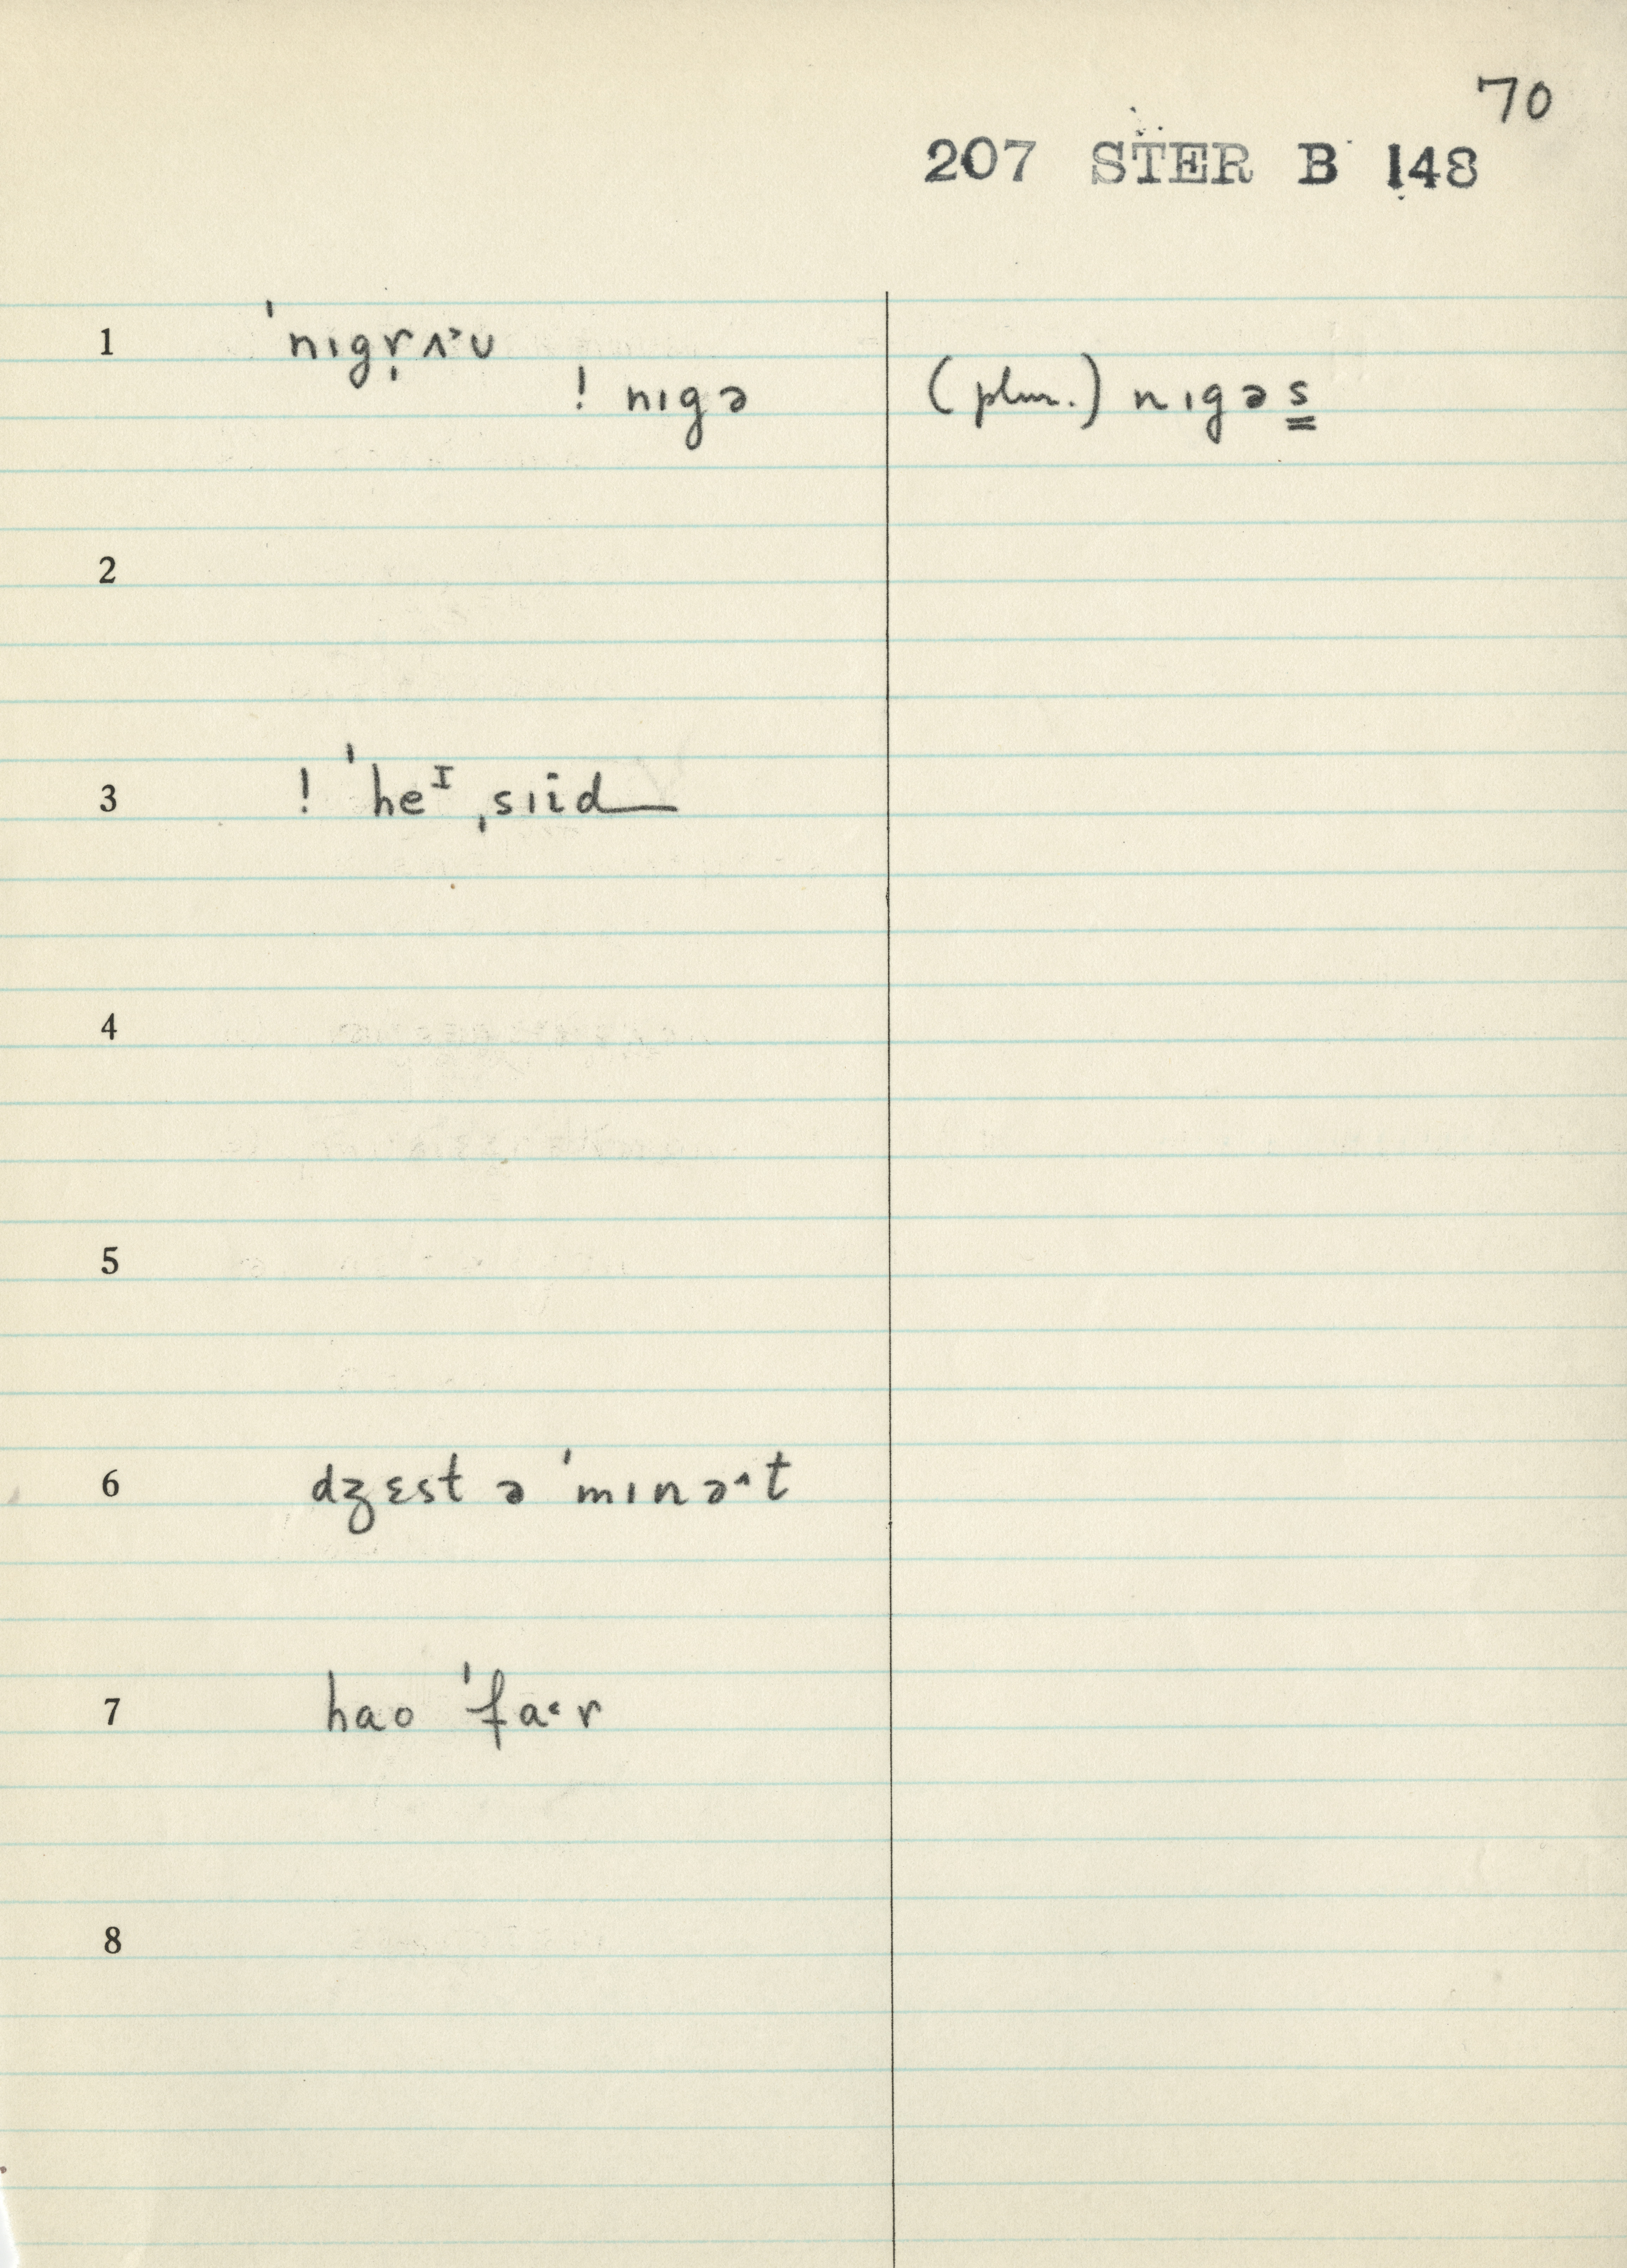 70
207 STER B 148
1 ˈnɪgṛʌ˃ʊ
! nɪgə (plur.) nɪgəs
2
3 ! ˈheᴵ ˌsiid
4
5
6 dʒɛst ə ˈmɪnə^t
7 hao ˈfa˂r
8